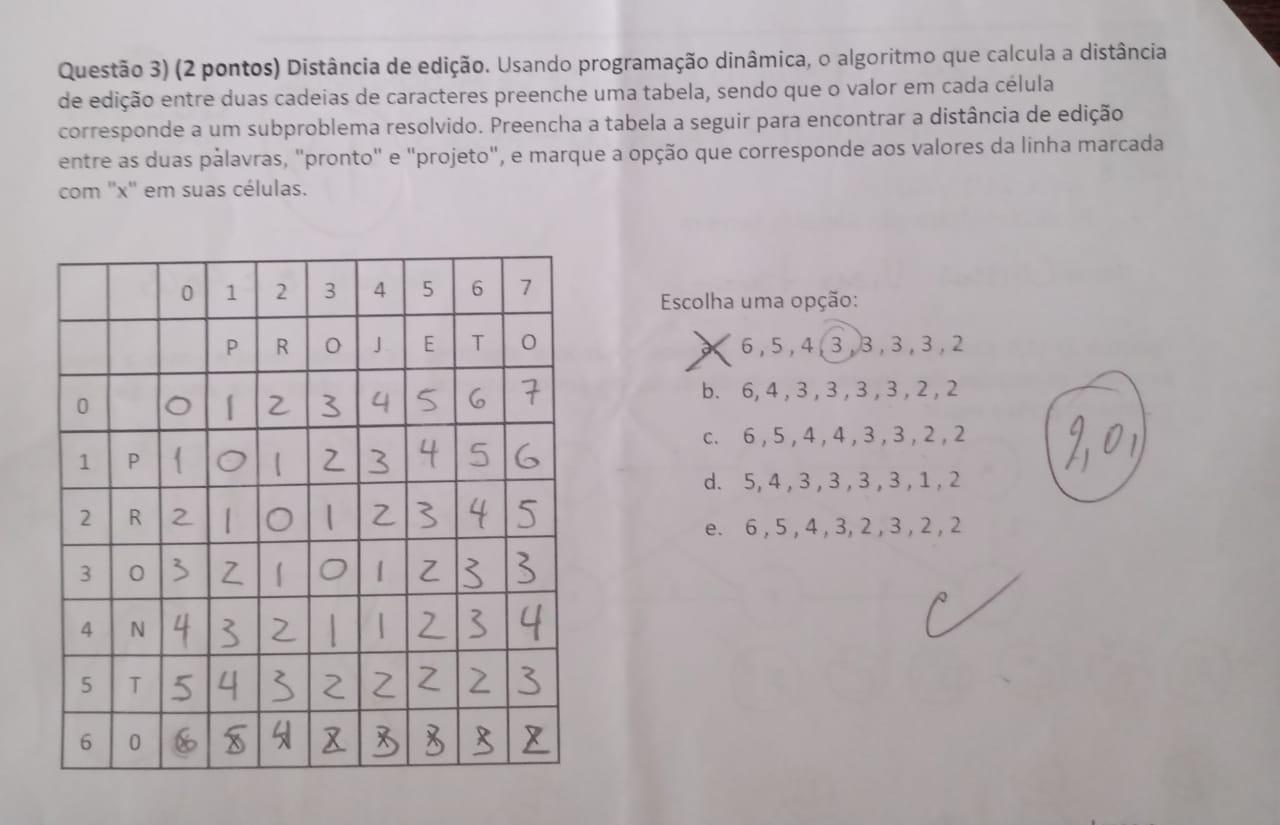 Questão 3) (2 pontos) Distância de edição. Usando programação dinâmica, o algoritmo que calcula a distância
de edição entre duas cadeias de caracteres preenche uma tabela, sendo que o valor em cada célula
corresponde a um subproblema resolvido. Preencha a tabela a seguir para encontrar a distância de edição
entre as duas palavras, "pronto" e "projeto", e marque a opção que corresponde aos valores da linha marcada
com "x" em suas células.
0 1 2 3 4 5 6 7
P R O J E T O
0 0 1 2 3 4 5 6 7
1 P 1 0 1 2 3 4 5 6
2 R 2 1 0 1 2 3 4 5
3 O 3 2 1 0 1 2 3 3
4 N 4 3 2 1 1 2 3 4
5 T 5 4 3 2 2 2 2 3
6 O 6 5 4 2 3 3 3 2
Escolha uma opção:
a. 6 , 5 , 4 , 3 , 3 , 3 , 3 , 2
b. 6, 4 , 3 , 3 , 3 , 3 , 2 , 2
c. 6 , 5 , 4 , 4 , 3 , 3 , 2 , 2
d. 5, 4 , 3 , 3 , 3 , 3 , 1 , 2
e. 6 , 5 , 4 , 3, 2 , 3 , 2 , 2
2,0